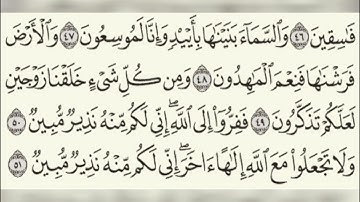 فَاسِقِينَ ۝٤٦ وَالسَّمَاءَ بَنَيْنَاهَا بِأَيْيدٍ وَإِنَّا لَمُوسِعُونَ ۝٤٧ وَالْأَرْضَ
فَرَشْنَاهَا فَنِعْمَ الْمَاهِدُونَ ۝٤٨ وَمِن كُلِّ شَيْءٍ خَلَقْنَا زَوْجَيْنِ
لَعَلَّكُمْ تَذَكَّرُونَ ۝٤٩ فَفِرُّوا إِلَى اللَّهِ ۖ إِنِّي لَكُم مِّنْهُ نَذِيرٌ مُّبِينٌ ۝٥٠
وَلَا تَجْعَلُوا مَعَ اللَّهِ إِلَٰهًا آخَرَ ۖ إِنِّي لَكُم مِّنْهُ نَذِيرٌ مُّبِينٌ ۝٥١